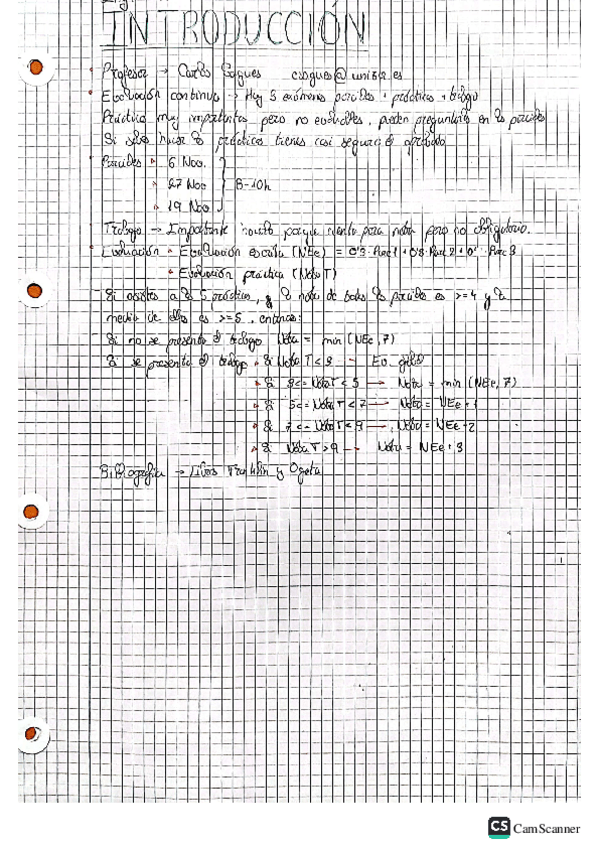 INTRODUCCIÓN
Profesor → Carlos Sagues csagues@unizar.es
Evaluación continua → Hay 3 exámenes parciales + prácticas + trabajo
Prácticas muy importantes pero no evaluables, pueden preguntarlas en los parciales
Si sabes hacer las prácticas tienes casi seguro el aprobado
Parciales
6 Nov.
27 Nov 8-10h
19 Nov
Trabajo → Importante porque cuenta para nota pero no obligatorio.
Evaluación Evaluación escrita (NEe) = 0'3·Parc 1 + 0'3·Parc 2 + 0' · Parc 3
Evaluación práctica (Nota T)
Si asistes a las 5 prácticas, y la nota de todos los parciales es >=4 y la
media de ellos es >=5, entonces:
Si no se presenta el trabajo Nota = min (NEe, 7)
Si se presenta el trabajo Si Nota T < 3 → Ev. global
Si 3 <= Nota T < 5 → Nota = min (NEe, 7)
Si 5 <= Nota T < 7 → Nota = NEe + 1
Si 7 <= Nota T < 9 → Nota = NEe + 2
Si Nota T > 9 → Nota = NEe + 3
Bibliografía → Libros Franklin y Ogata
CS CamScanner